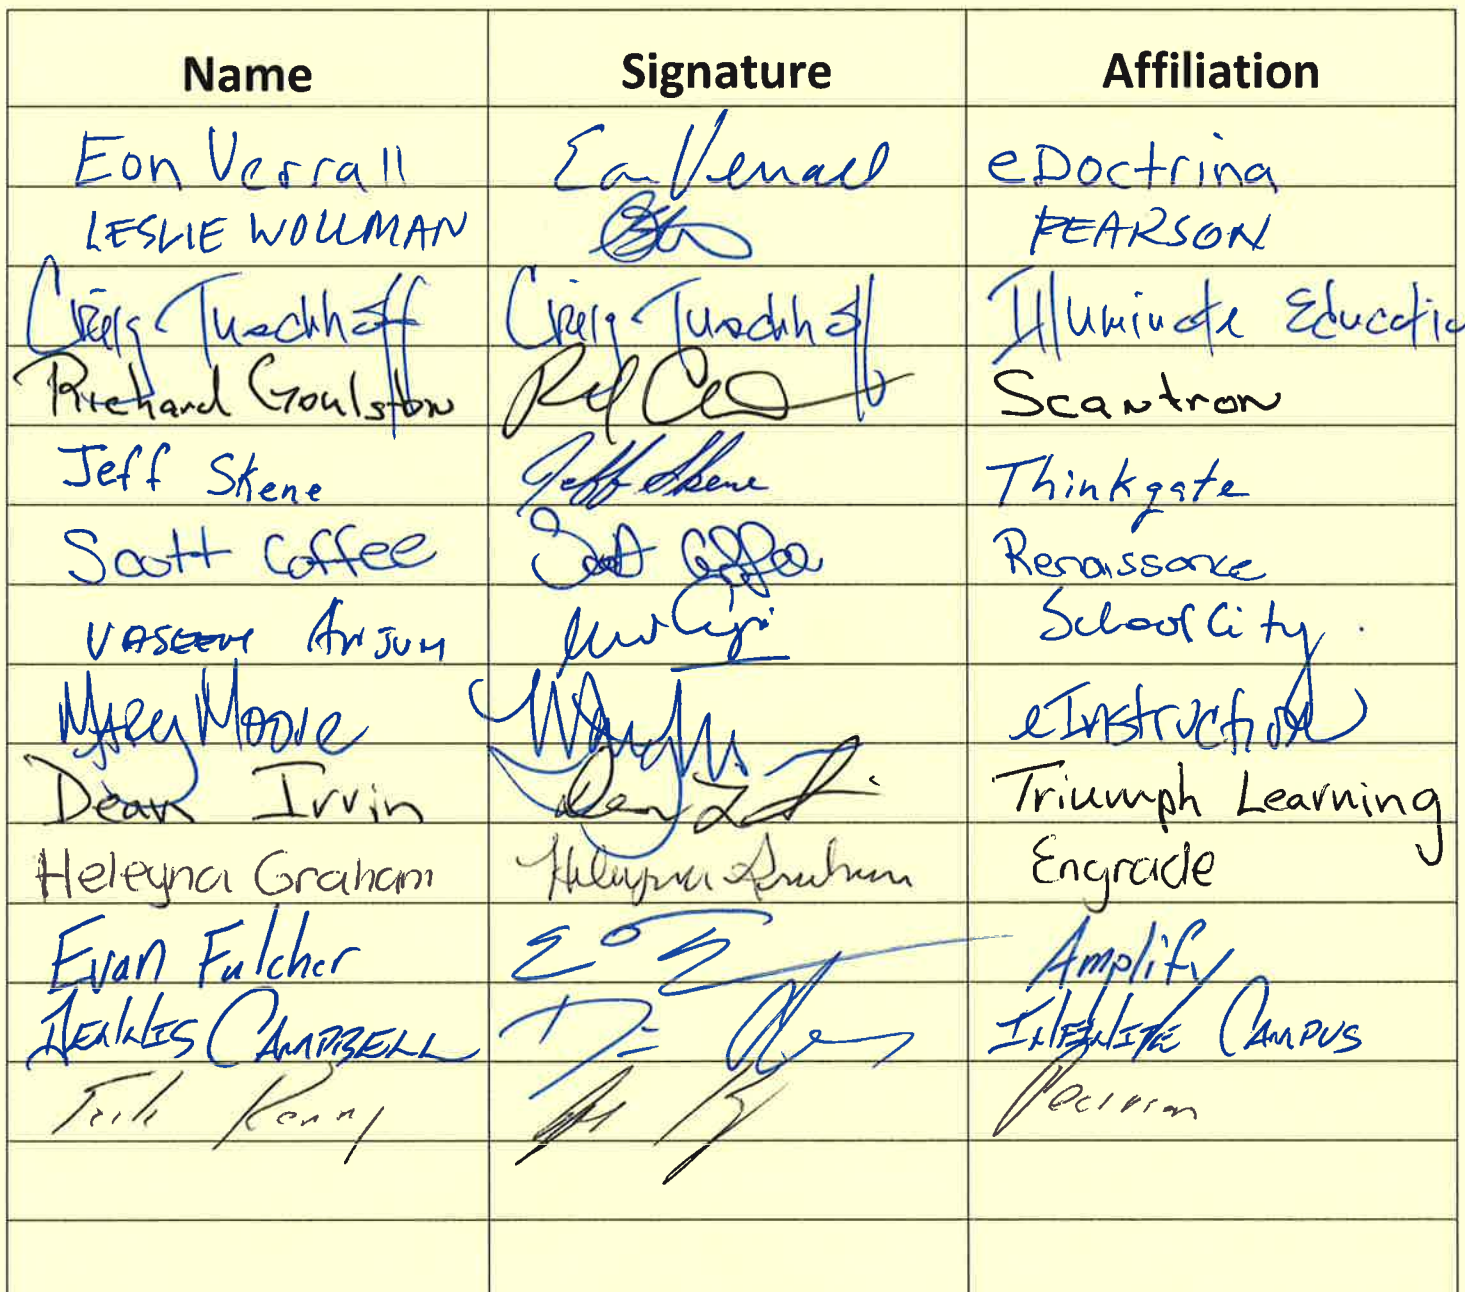 Name Signature Affiliation
Eon Verrall Eon Verrall eDoctrina
LESLIE WOLLMAN PEARSON
Craig Tuschhoff Craig Tuschhoff Illuminate Educatio
Richard Goulston Scantron
Jeff Skene Jeff Skene Thinkgate
Scott Coffee Scott Coffee Renaissance
VASEEM ANJUM SchoolCity.
Mary Moore eInstruction
Dean Irvin Triumph Learning
Heleyna Graham Heleyna Graham Engrade
Evan Fulcher Amplify
DENNIS CAMPBELL INFINITE CAMPUS
Kenny